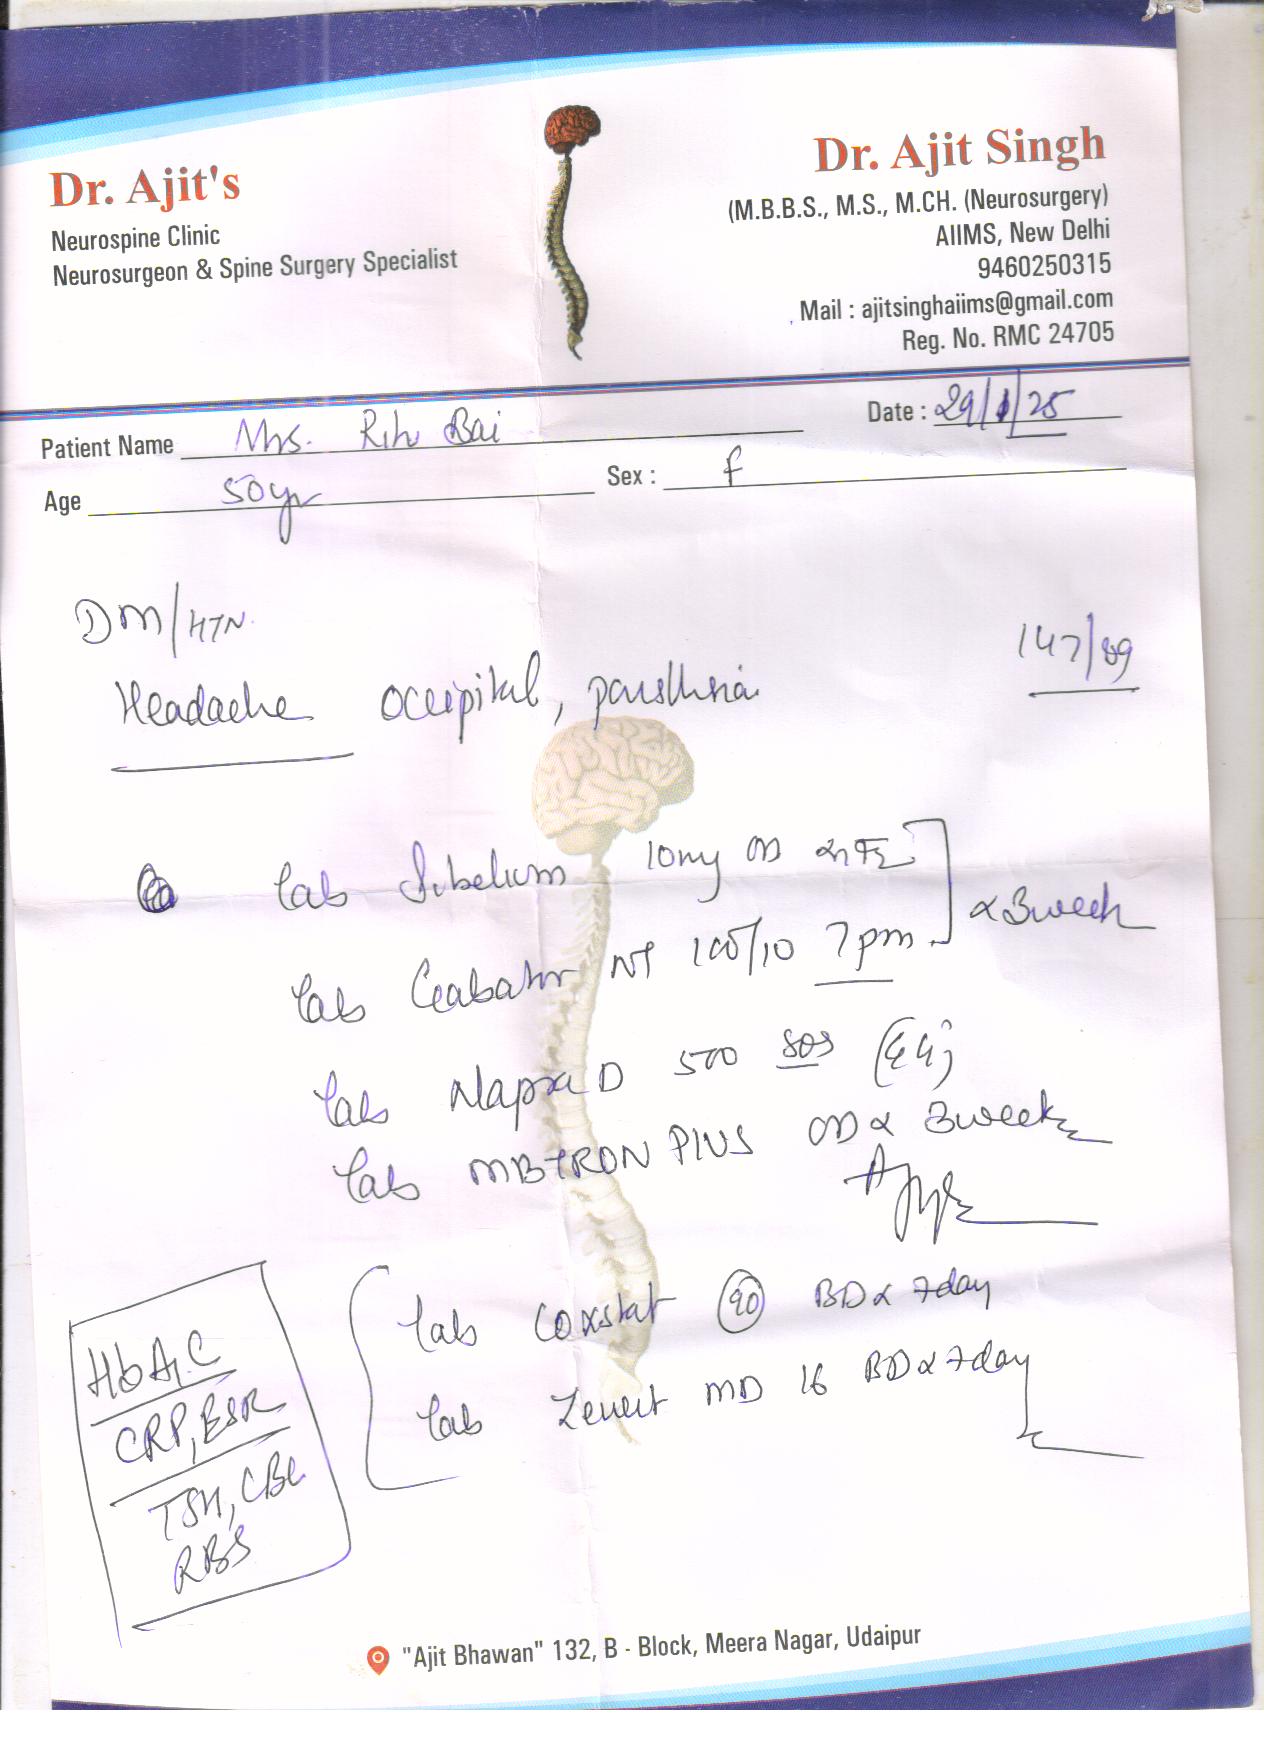 Dr. Ajit's
Neurospine Clinic
Neurosurgeon & Spine Surgery Specialist
Dr. Ajit Singh
(M.B.B.S., M.S., M.CH. (Neurosurgery)
AIIMS, New Delhi
9460250315
Mail : ajitsinghaiims@gmail.com
Reg. No. RMC 24705
Patient Name Mrs. Bai
Date : 29/1/25
Age 50yr
Sex : f
DM/HTN.
147/89
Headache occipital,
Tab Sibelium 10mg OD
Tab NT 100/10 7pm
x 3 week
Tab Napra D 500 SOS
Tab MBTRON PLUS OD x 3 week
Tab Coxstat 90 BD x 7day
Tab MD 16 BD x 7day
HbA1C
CRP, ESR
TSH, CBC
RBS
"Ajit Bhawan" 132, B - Block, Meera Nagar, Udaipur